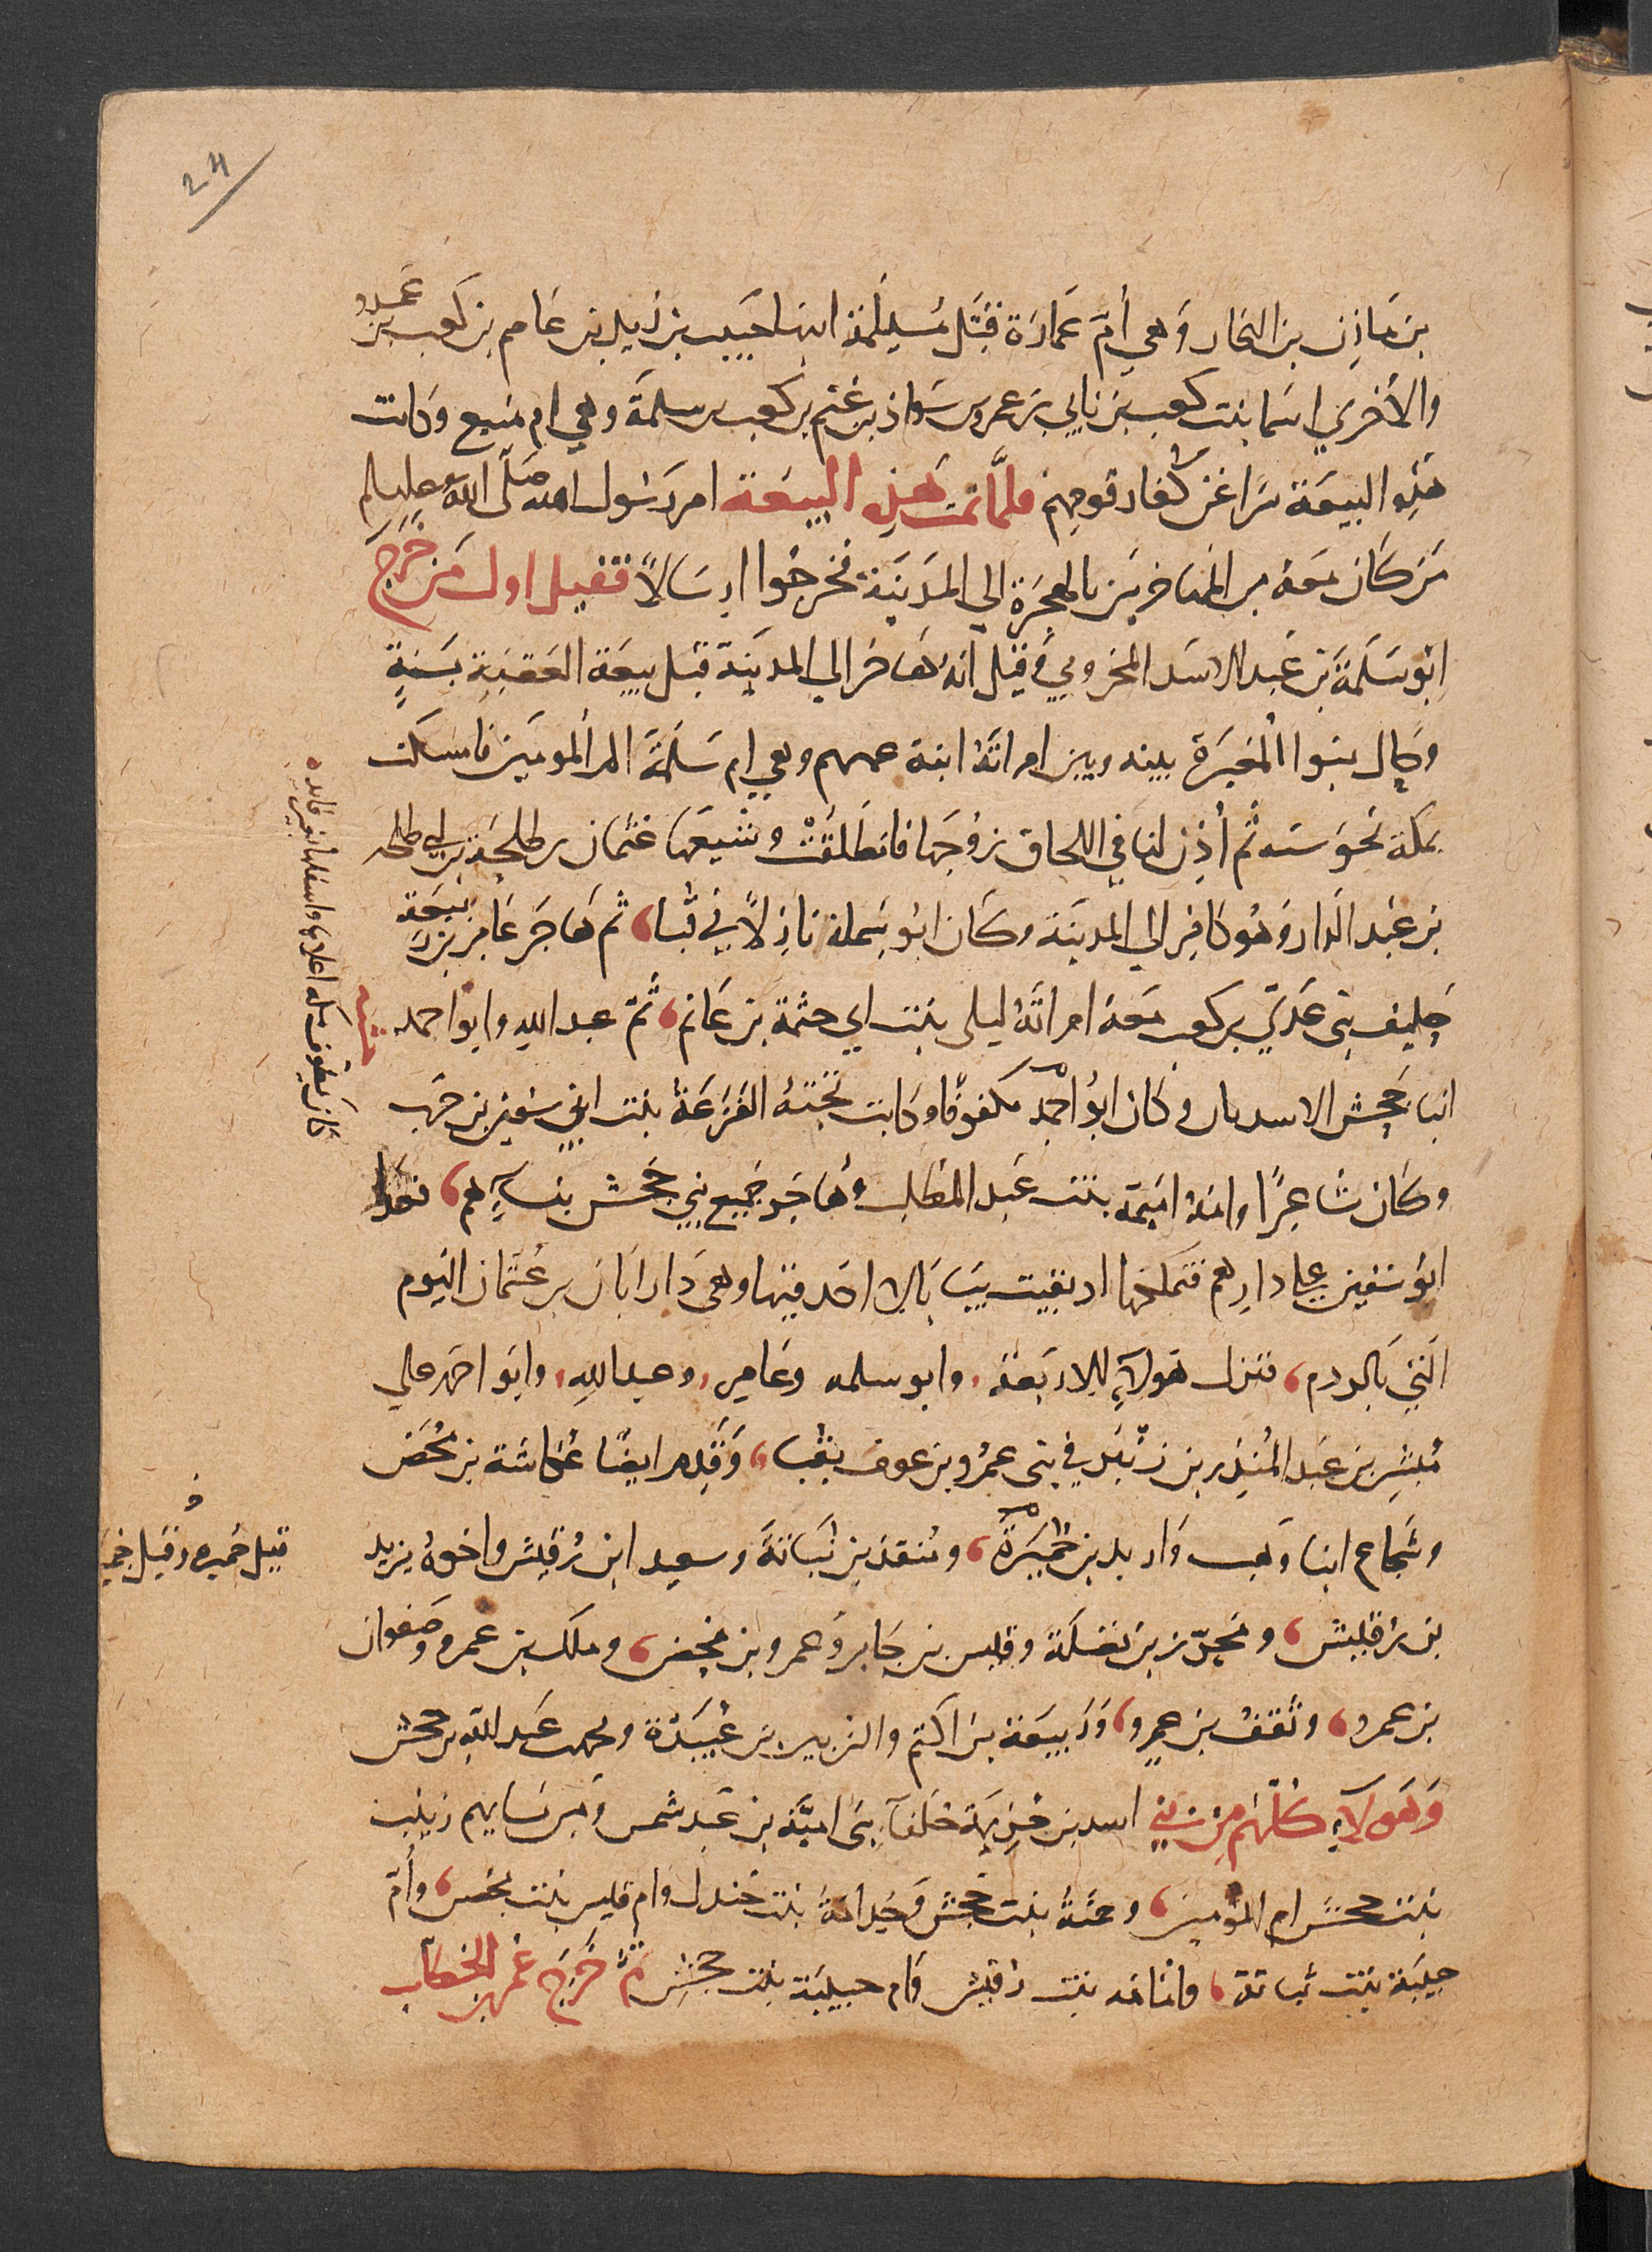 24
بن مازن بن النجار وهي أمّ عمارة قتل مسيلمة ابنها حبيب بن زيد بن عاصم بن كعب بن عمرو
والأخري اسما بنت كعب بن نابي بن عمرو بن سواد بن غنم بن كعب بن سلمة وهي ام منيع وكانت
هذه البيعة سرا عن كفار قومهم فلمّا تمت هذه البيعة امر رسول الله صلى الله عليه وسلم
من كان معه من المهاجرين بالهجرة الي المدينة فخرجوا ارسالاً فقيل اول من خرج
ابو سلمة بن عبد الاسد المخزومي وقيل انه هاجر الي المدينة قبل بيعة العقبة بسنةٍ
وحال بنوا المغيرة بينه وبين امراته ابنة عمهم وهي ام سلمة ام المومنين فامسكت
بمكة نحو سنه ثم أذن لها في اللحاق بزوجها فانطلقت وشيعها عثمان بن طلحة بن ابي طلحه
بن عبد الدار وهو كافر الي المدينة وكان ابو سلمة نازلاً في قبا، ثم هاجر عامر بن ربيعة
حليف بني عدي بن كعب معه امراته ليلى بنت ابي حثمة بن غانم، ثمّ عبد الله وابو احمد
ابنا جحش الاسديان وكان ابو احمد مكفوفا وكانت تحته الفرعة بنت ابي سفين بن حرب
وكان شاعرًا وامه اميمة بنت عبد المطلب وهاجر جميع بني جحش بنسآيهم، فعدا
ابو سفين علي دارهم فتملكها اذ بقيت يبابا لا احد فيها وهي دار ابان بن عثمان اليوم
التي بالردم، فنزل هولآء الاربعة، وابو سلمه وعامر، وعبد الله، وابو احمد علي
مبشر بن عبد المنذر بن زنبر في بني عمرو بن عوف بقبا، وقدم ايضا عكاشة بن محصن
وشجاع ابنا وهب واربد بن حميرة، ومنقذ بن نباتة وسعيد ابن رقيش واخوه يزيد
بن رقيش، ومحرز بن نضلة وقيس بن جابر وعمرو بن محصن، وملك بن عمرو وصفوان
بن عمرو، وثقف بن عمرو، وربيعة بن اكثم والزبير بن عبيدة ومحمد بن عبد الله بن جحش
وهولاء كلهم من بني اسد بن خزيمة حلفآء بني امية بن عبد شمس ومن نسايهم زينب
بنت جحش ام المومنين، وحمنة بنت جحش وجدامة بنت جندل وام قيس بنت محصن، وأمّ
حبيبة بنت نباتة، وامامه بنت رقيش وام حبيبة بنت جحش ثمّ خرج عمر بن الخطاب
كان يطوف مكه اعلاها واسفلها بغير قايده
قيل حميره وقيل